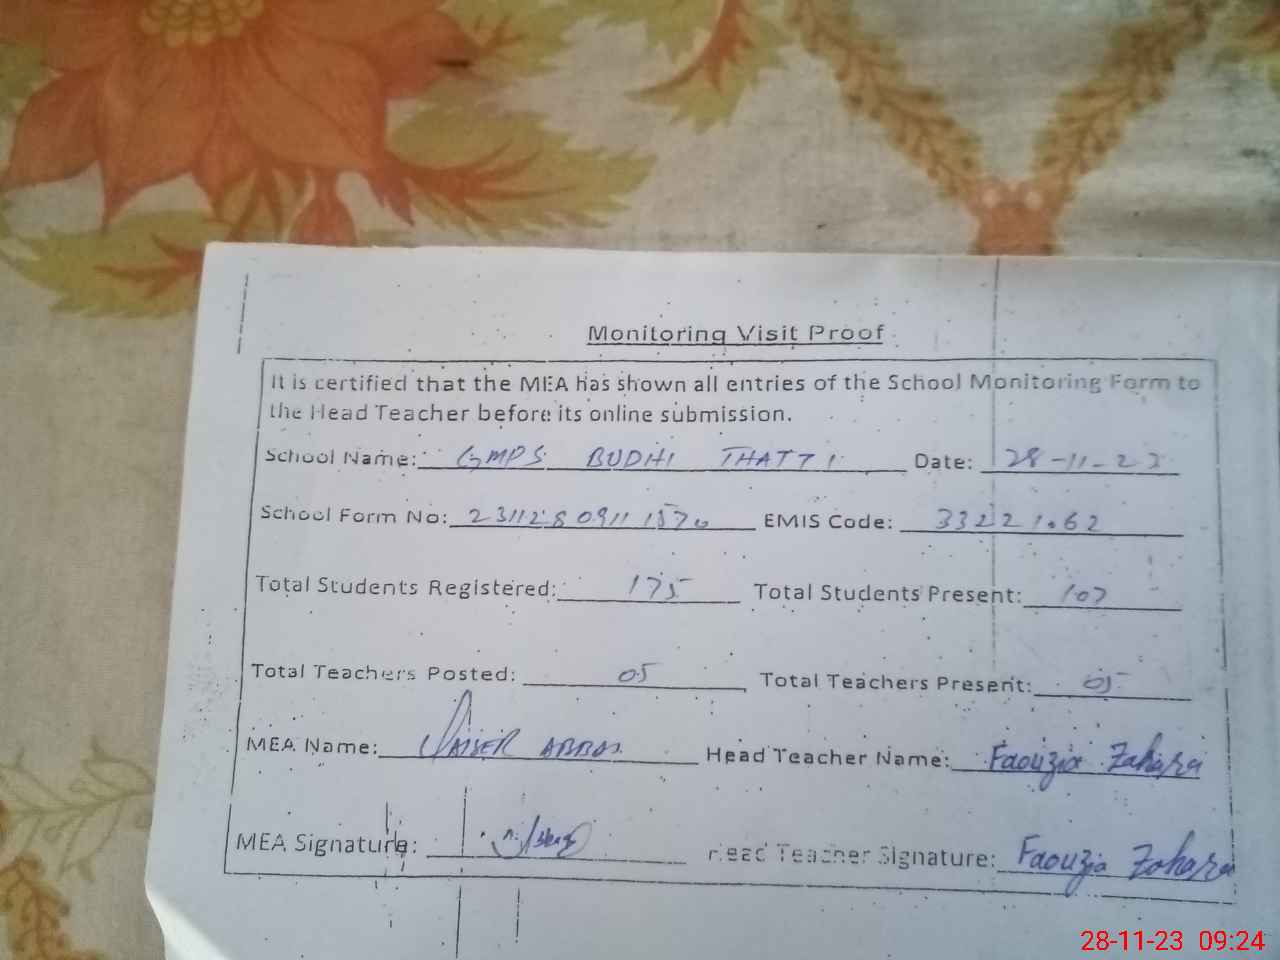 Monitoring Visit Proof
It is certified that the MEA has shown all entries of the School Monitoring Form to
the Head Teacher before its online submission.
School Name: GMPS BUDHI THATTI Date: 28-11-23
School Form No: 23112809111570 EMIS Code: 33221062
Total Students Registered: 175 Total Students Present: 107
Total Teachers Posted: 05 Total Teachers Present: 05
MEA Name: QAISER ABBAS Head Teacher Name: Faouzia Zahara
MEA Signature: Head Teacher Signature: Faouzia Zahara
28-11-23 09:24